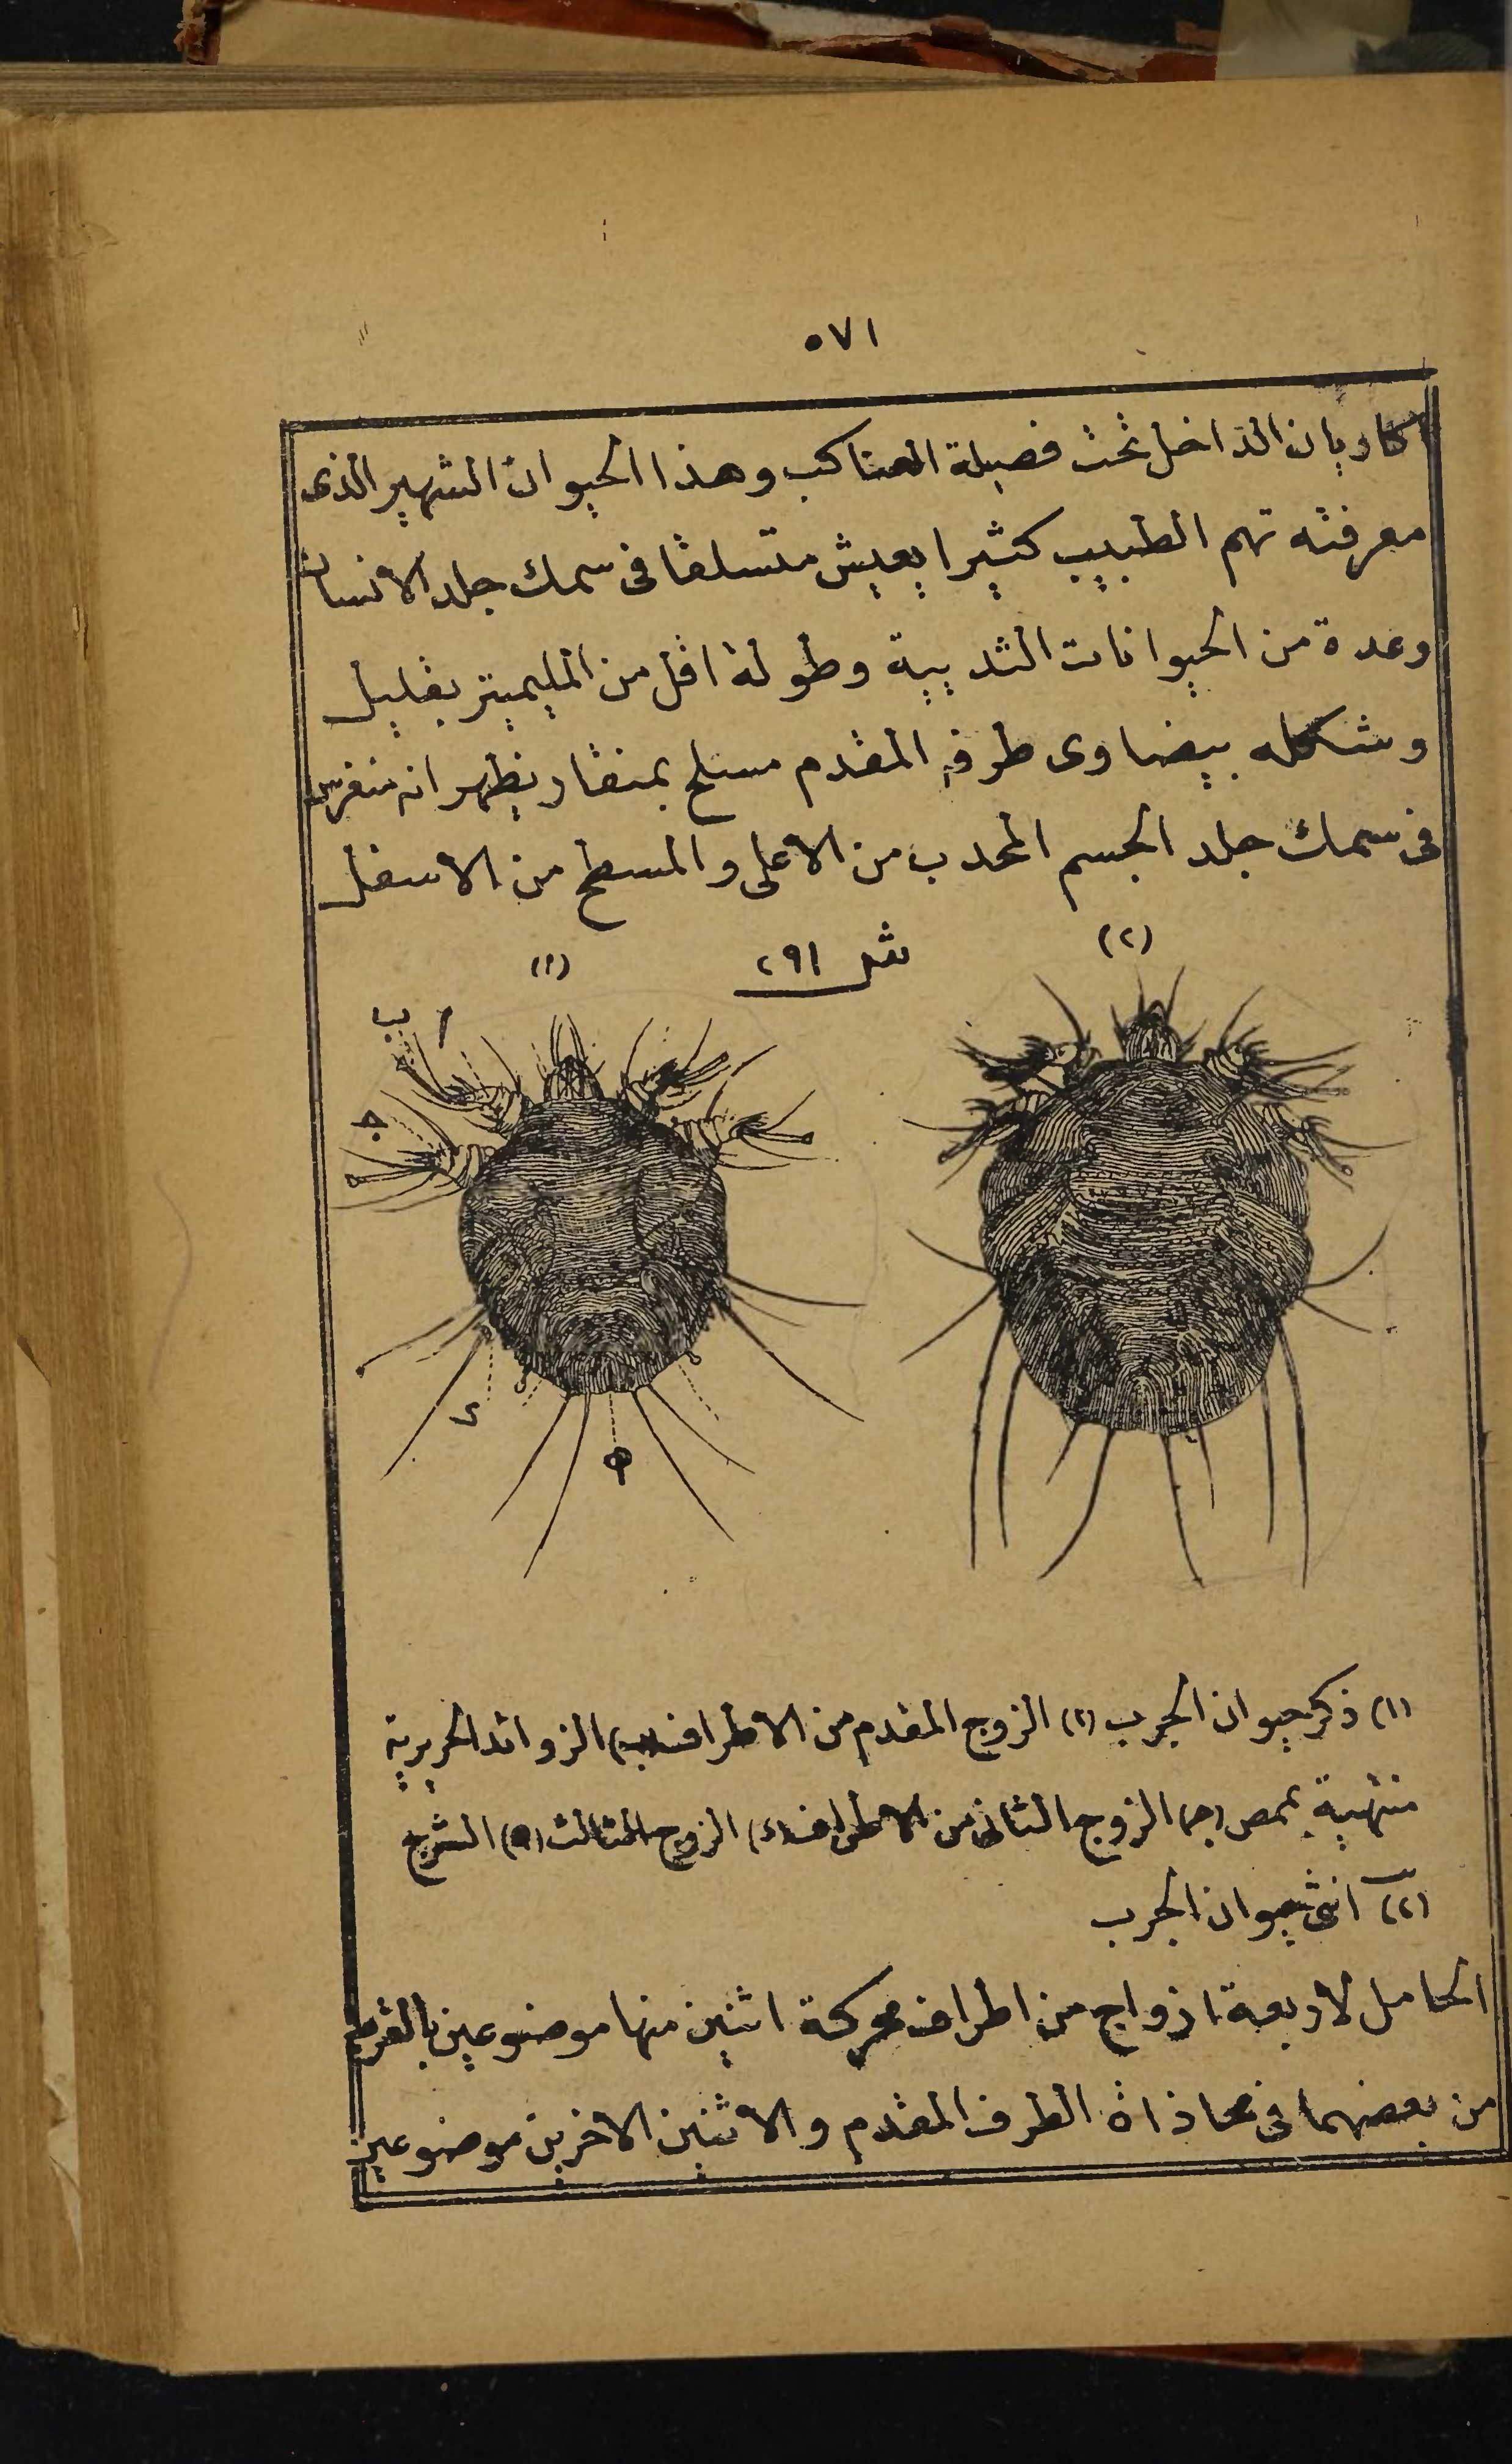 ٥٧١
اكاريان الداخل تحت فصيلة العناكب وهذا الحيوان الشهير الذى
معرفته تهم الطبيب كثيرا يعيش متسلقا فى سمك جلد الانسان
وعدة من الحيوانات الثديية وطوله اقل من المليميتر بقليل
وشكله بيضاوى طرفه المقدم مسلح بمنقار يظهر انه منغرس
فى سمك جلد الجسم المحدب من الاعلى والمسطح من الاسفل
(٢) شكل ٢٩١ (١)
ا ب
ج
د
ه
(١) ذكر حيوان الجرب (١) الزوج المقدم من الاطراف (ب) الزوائد الحريرية
منتهية بممص (ج) الزوج الثانى من الاطراف (د) الزوج الثالث (ه) الشرج
(٢) انثى حيوان الجرب
الحامل لاربعة ازواج من اطراف محركة اثنين منها موضوعين بالقرب
من بعضهما فى محاذاة الطرف المقدم والاثنين الاخرين موضوعين